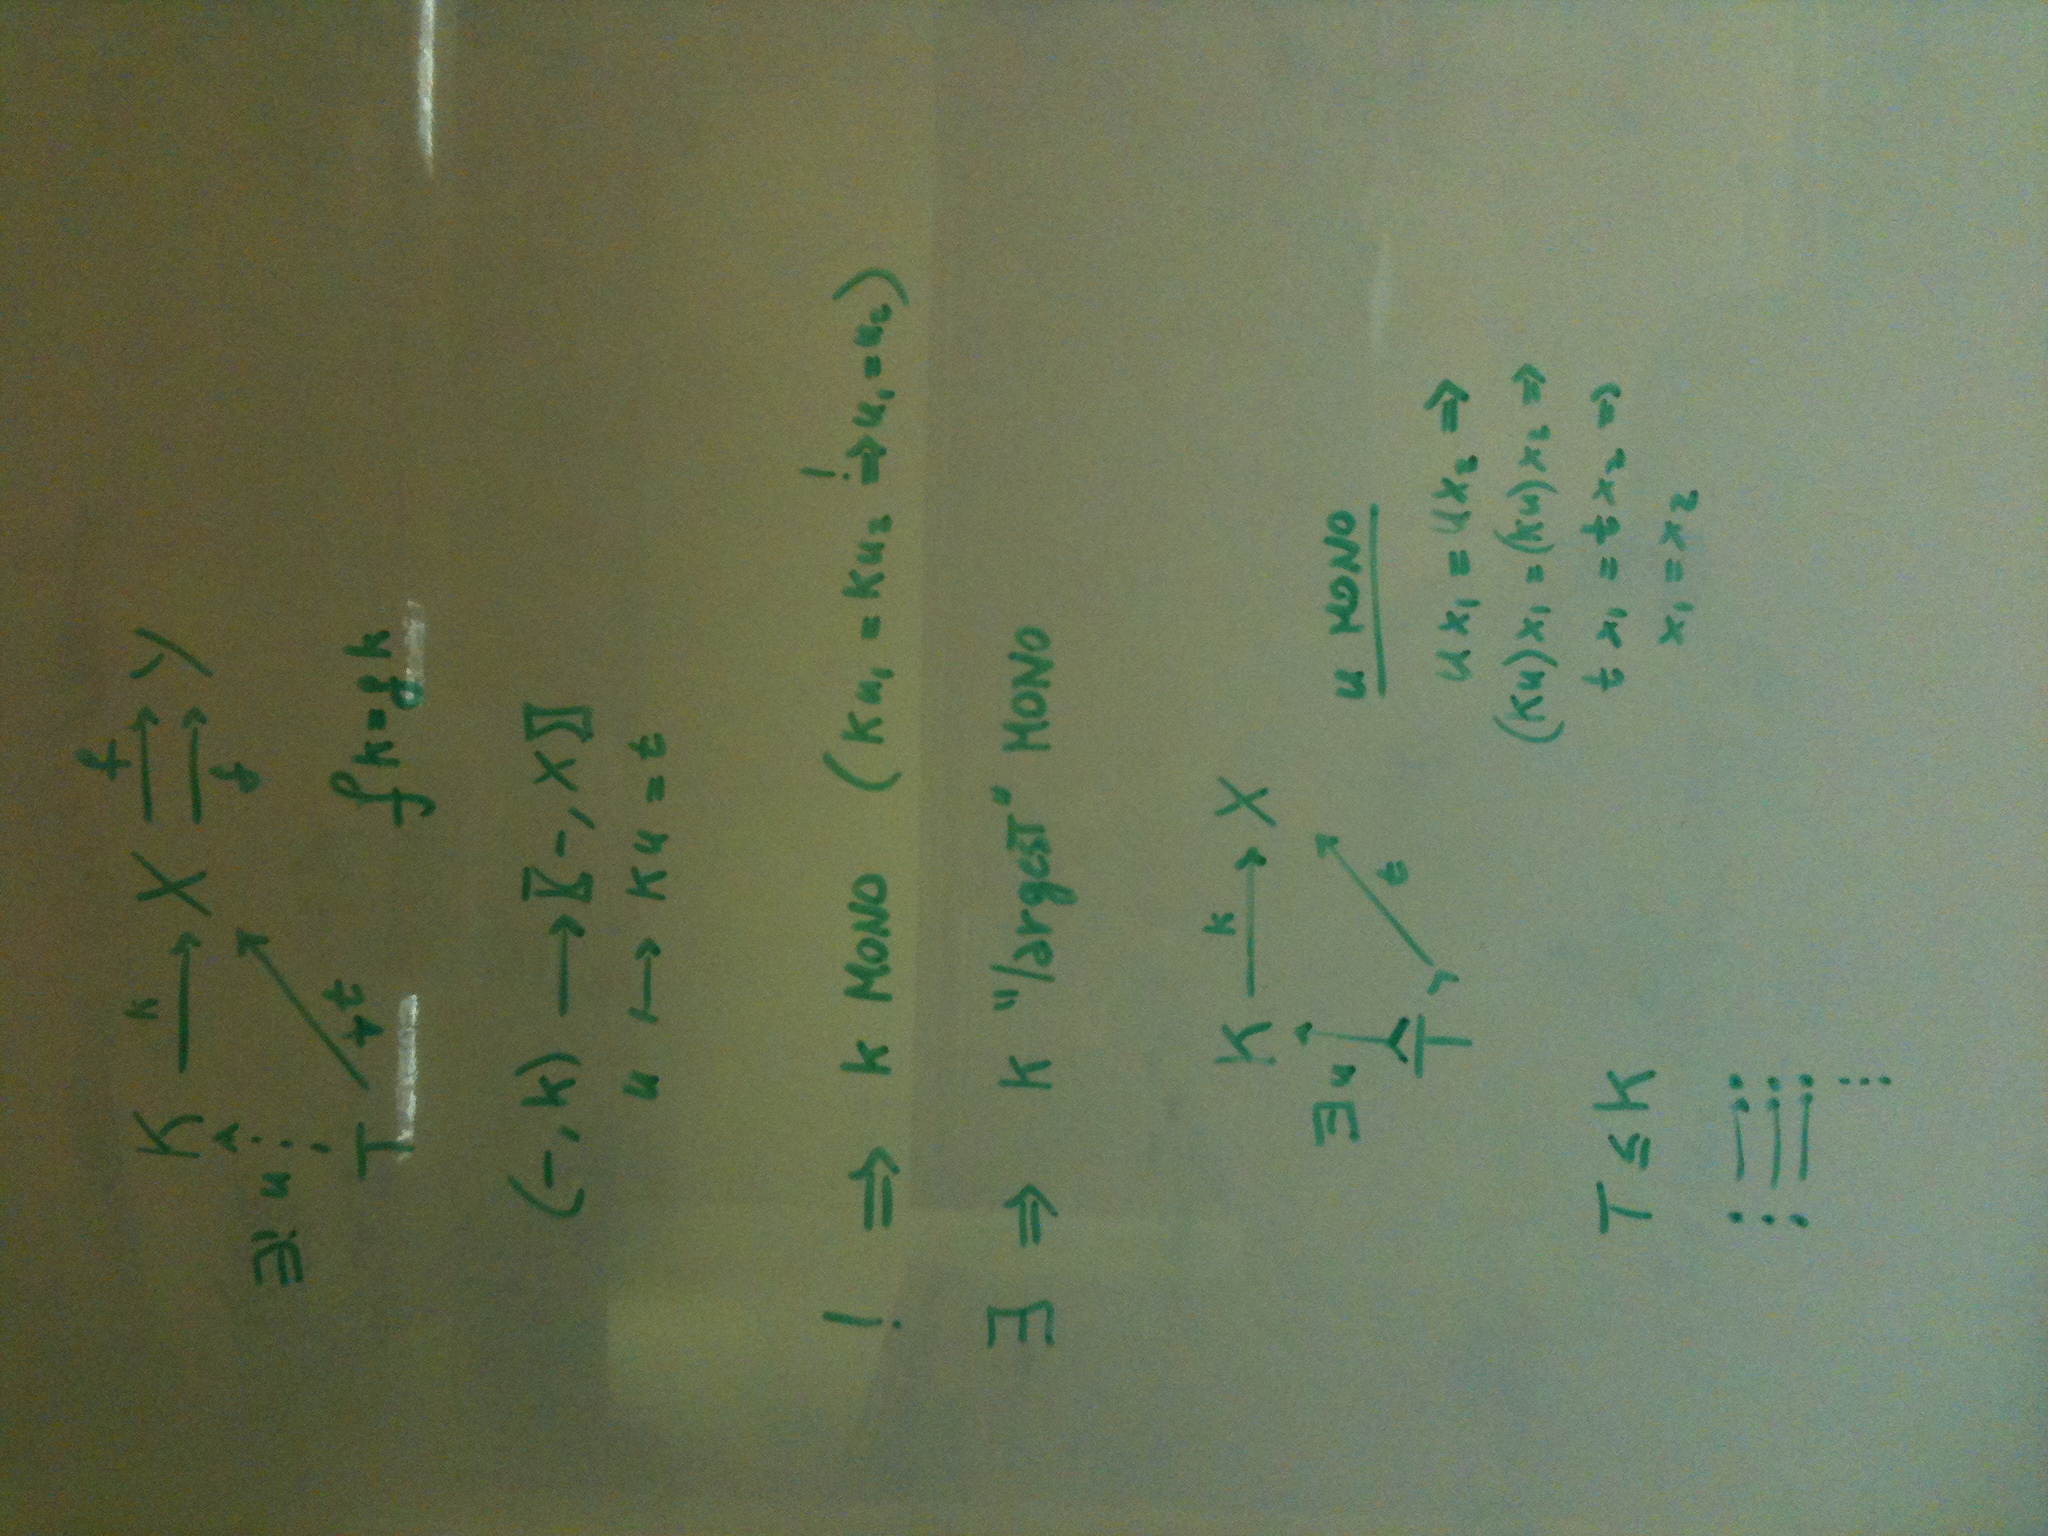 K k X f Y
g
∃! u
T ∀t
fk = gk
(-, k) → ⟦-, X⟧
u ↦ ku = t
! ⇒ k MONO (ku₁ = ku₂ ⇒! u₁ = u₂)
∃ ⇒ k "largesT" MONO
K k X
∃ u
T t
u MONO
ux₁ = ux₂ ⇒
(ku)x₁ = (ku)x₂ ⇒
tx₁ = tx₂ ⇒
x₁ = x₂
T ≤ K